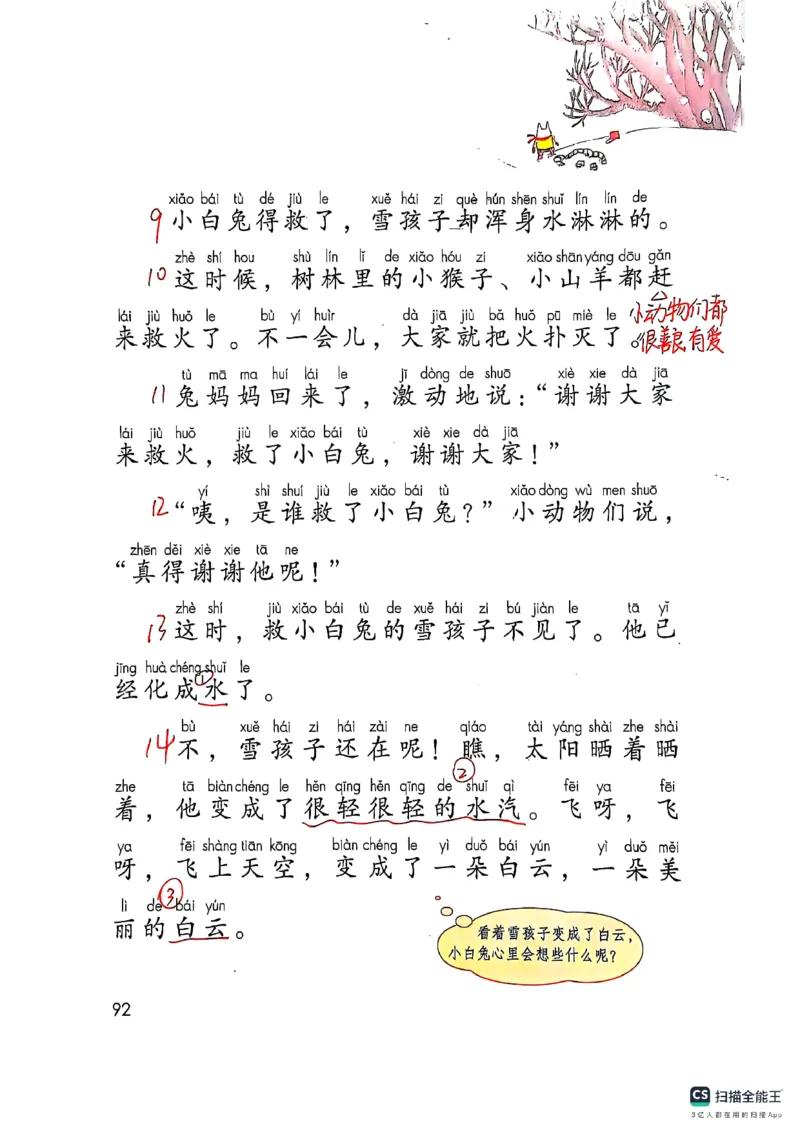 xiǎo bái tù dé jiù le xuě hái zi què hún shēn shuǐ lín lín de
9 小白兔得救了，雪孩子却浑身水淋淋的。
zhè shí hou shù lín lǐ de xiǎo hóu zi xiǎo shān yáng dōu gǎn
10 这时候，树林里的小猴子、小山羊都赶
lái jiù huǒ le bù yí huìr dà jiā jiù bǎ huǒ pū miè le
来救火了。不一会儿，大家就把火扑灭了。
小动物们都
很善良有爱
tù mā ma huí lái le jī dòng de shuō xiè xie dà jiā
11 兔妈妈回来了，激动地说：“谢谢大家
lái jiù huǒ jiù le xiǎo bái tù xiè xie dà jiā
来救火，救了小白兔，谢谢大家！”
yí shì shuí jiù le xiǎo bái tù xiǎo dòng wù men shuō
12 “咦，是谁救了小白兔？”小动物们说，
zhēn děi xiè xie tā ne
“真得谢谢他呢！”
zhè shí jiù xiǎo bái tù de xuě hái zi bú jiàn le tā yǐ
13 这时，救小白兔的雪孩子不见了。他已
jīng huà chéng shuǐ le
①
经化成水了。
bù xuě hái zi hái zài ne qiáo tài yáng shài zhe shài
14 不，雪孩子还在呢！瞧，太阳晒着晒
②
zhe tā biàn chéng le hěn qīng hěn qīng de shuǐ qì fēi ya fēi
着，他变成了很轻很轻的水汽。飞呀，飞
ya fēi shàng tiān kōng biàn chéng le yì duǒ bái yún yì duǒ měi
呀，飞上天空，变成了一朵白云，一朵美
③
lì de bái yún
丽的白云。
看着雪孩子变成了白云，
小白兔心里会想些什么呢？
92
CS 扫描全能王
3亿人都在用的扫描App